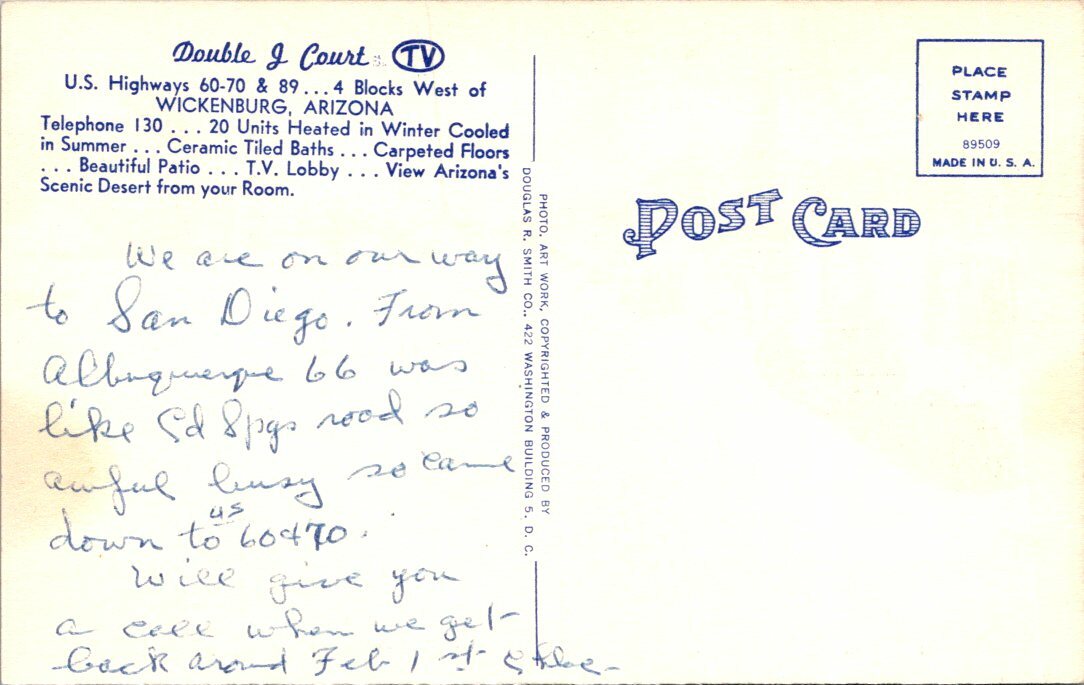 Double J Court TV
U.S. Highways 60-70 & 89 ... 4 Blocks West of
WICKENBURG, ARIZONA
Telephone 130 ... 20 Units Heated in Winter Cooled
in Summer ... Ceramic Tiled Baths ... Carpeted Floors
... Beautiful Patio ... T.V. Lobby ... View Arizona's
Scenic Desert from your Room.
We are on our way
to San Diego. From
Albuquerque 66 was
like Spgs road so
awful busy so came
down to US 60&70.
Will give you
a call when we get
back around Feb 1st
PHOTO, ART WORK, COPYRIGHTED & PRODUCED BY
DOUGLAS R. SMITH CO., 422 WASHINGTON BUILDING 5, D. C.
POST CARD
PLACE
STAMP
HERE
89509
MADE IN U. S. A.